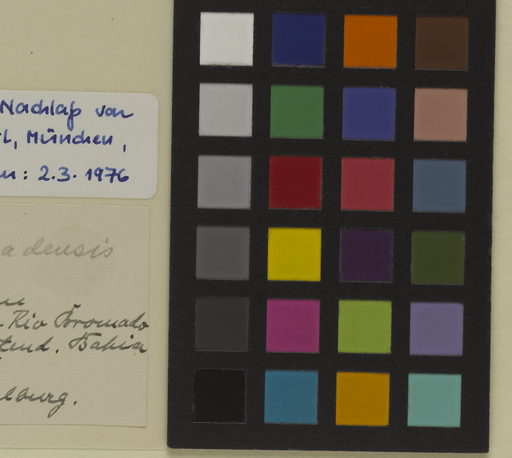 Nachlaß von
l, München,
: 2.3.1976
adensis
Rio Bromado
Bahia
burg.